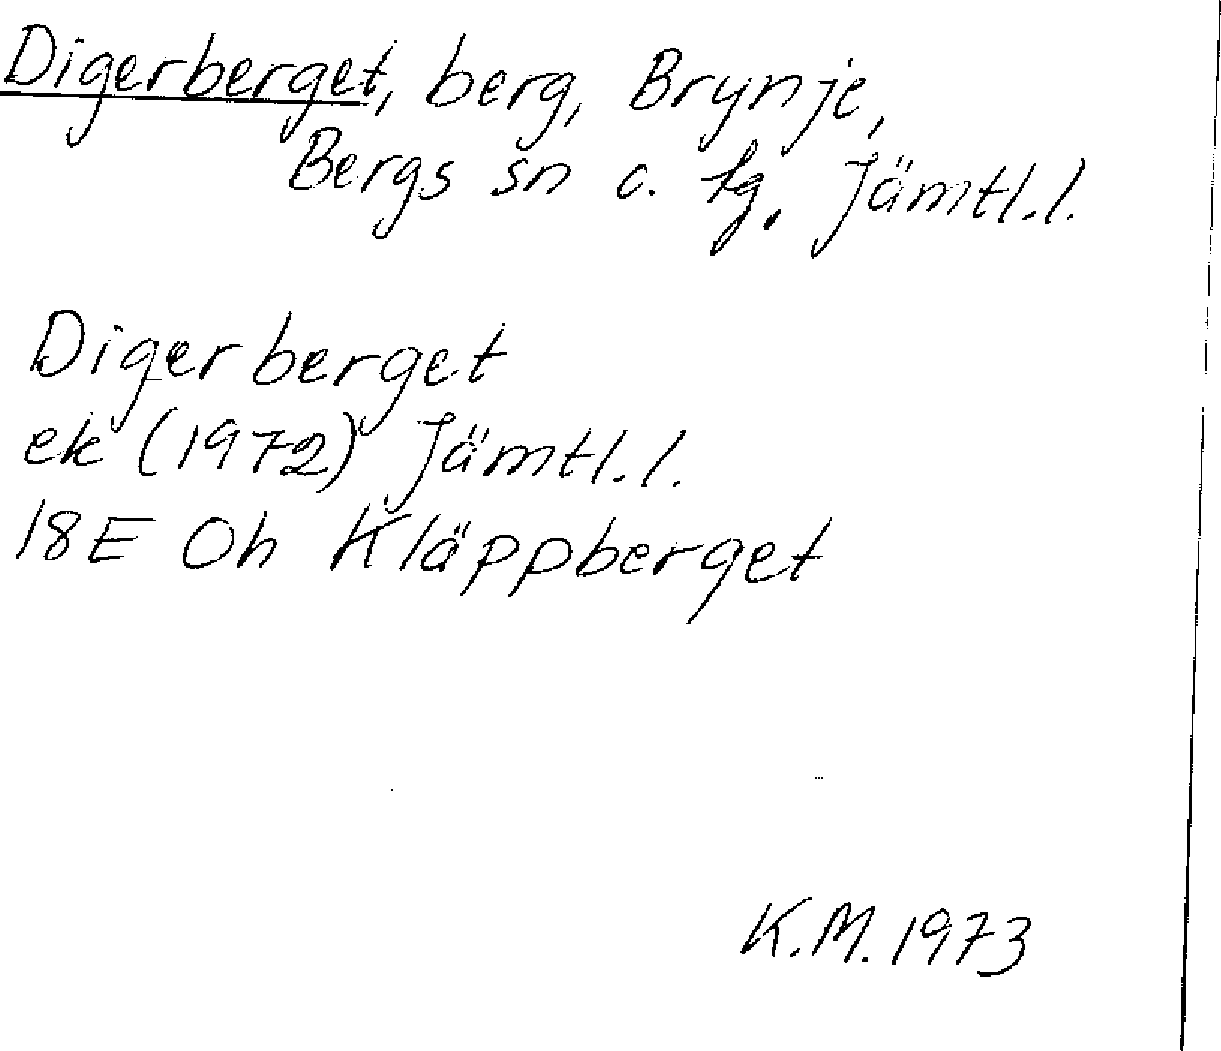 Digerberget, berg, Brynje,
Bergs sn o. tg, Jämtl.l.
Digerberget
ek (1972) Jämtl.l.
18E 0h Kläppberget
K.M. 1973